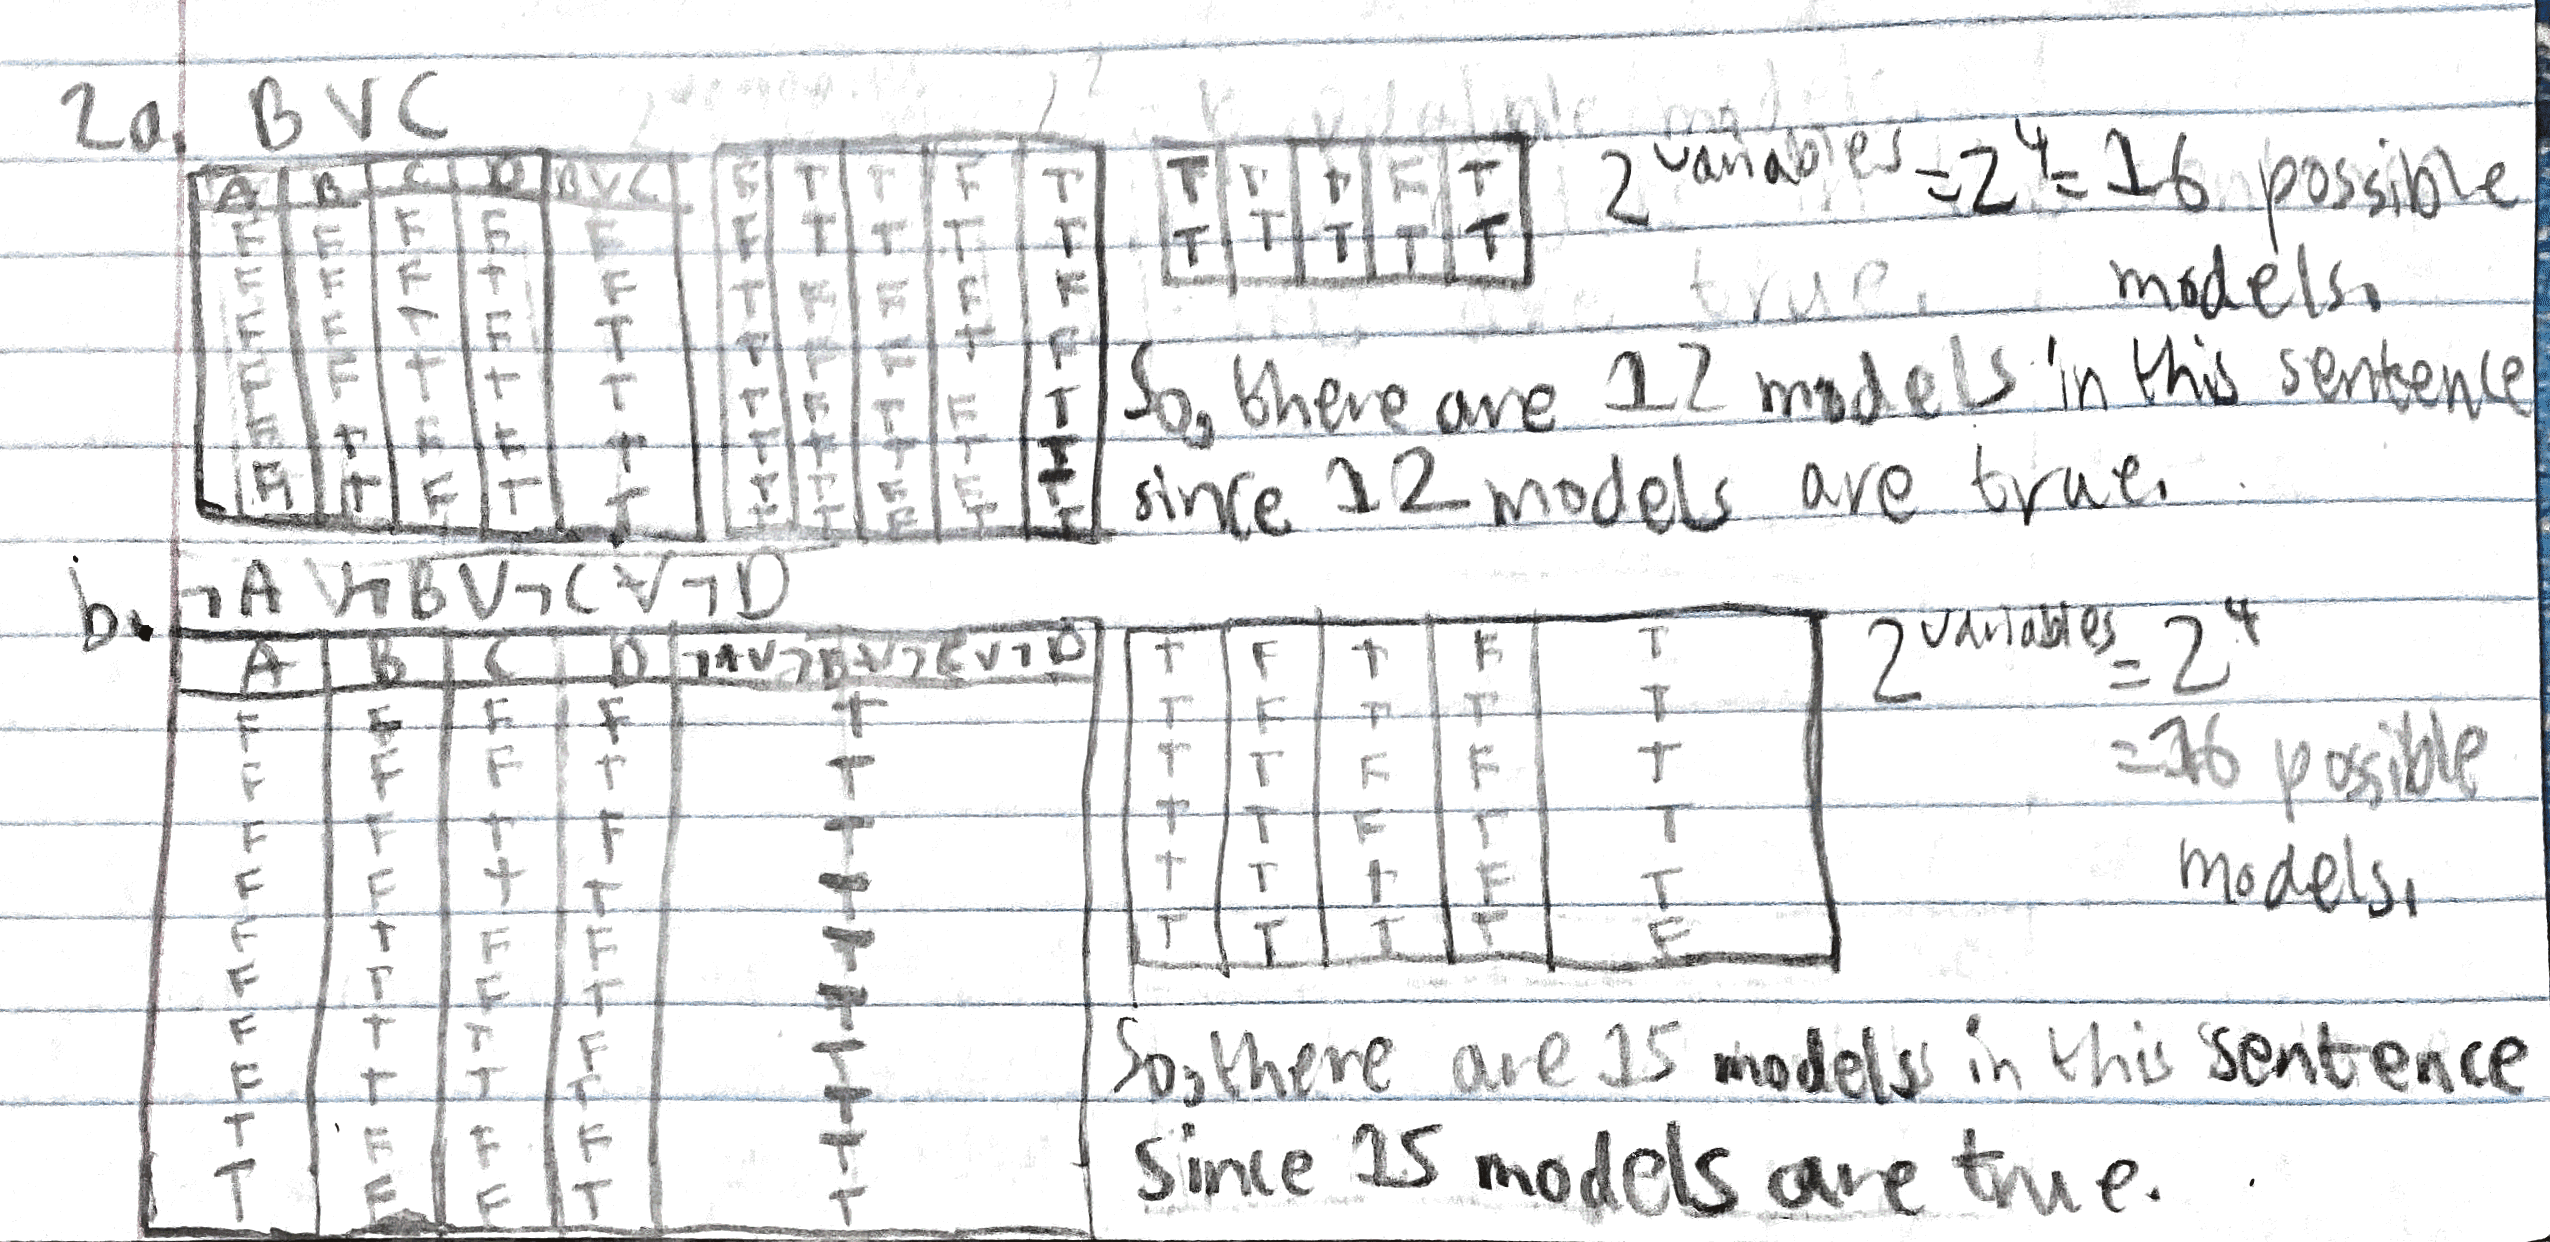 2a. B V C
A B C D BVC
F F F F F
F F F T F
F F T F T
F F T T T
F T F F T
F T F T T
F T T F T
F T T T T
T F F F F
T F F T F
T F T F T
T T T T T
T T F F T
T T F T T
T T T F T
T T T T T
2^variables = 2^4 = 16 possible
models.
So, there are 12 models in this sentence
since 12 models are true.
b. ¬A V ¬B V ¬C V ¬D
A B C D ¬AV¬BV¬CV¬D
F F F F T
F F F T T
F F T F T
F F T T T
F T F F T
F T F T T
F T T F T
F T T T T
T F F F T
T F F T T
T F T F T
T F T T T
T T F F T
T T F T T
T T T F T
T T T T F
2^variables = 2^4
=16 possible
models.
So, there are 15 models in this sentence
since 15 models are true.